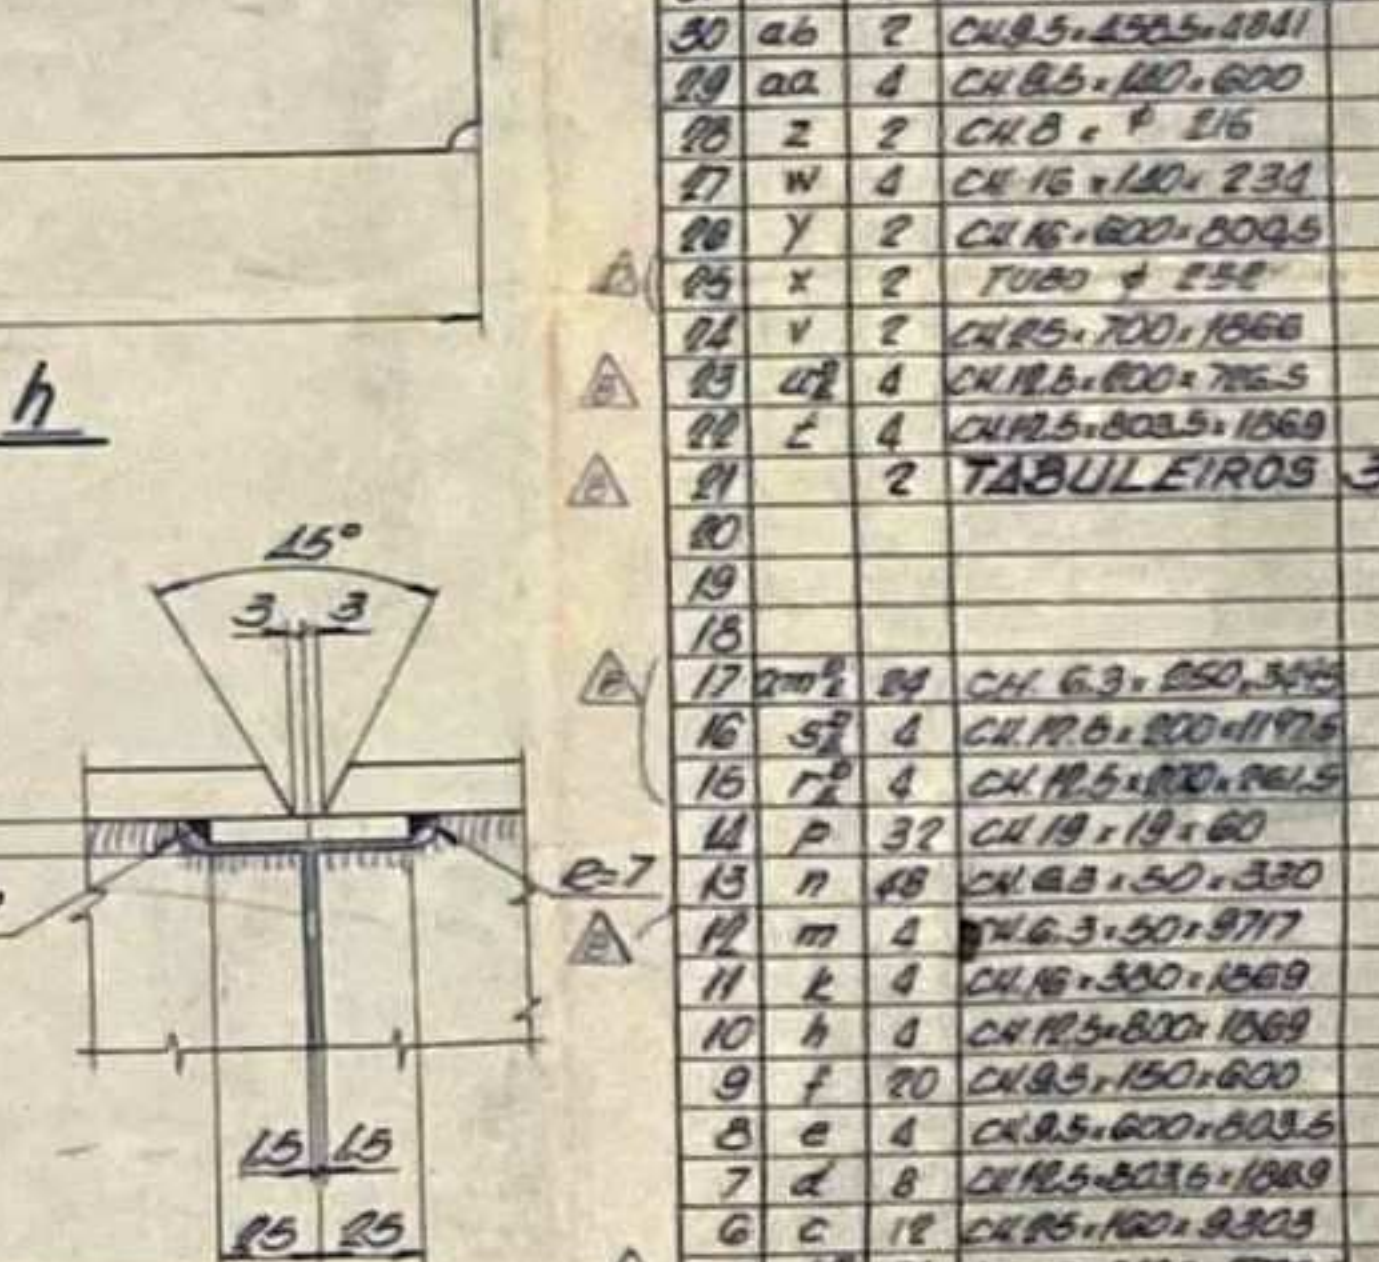 30 ab 2 CH.9.5×458.5×4841
29 aa 4 CH.9.5×140×600
28 z 2 CH.8 × φ 216
27 w 4 CH.16×140×234
26 y 2 CH.16×600×809.5
25 x 2 TUBO φ
24 v 2 CH.25×700×1866
23 4 CH.12.5×200×726.5
22 t 4 CH.12.5×803.5×1869
21 2 TABULEIROS 3
20
19
18
17 24 CH. 6.3×250
16 4 CH.12.5×200×1197.5
15 4 CH.12.5×200×261.5
14 p 32 CH.19×19×60
13 n 48 CH.6.3×50×330
12 m 4 CH.6.3×50×9717
11 k 4 CH.16×380×1869
10 h 4 CH.12.5×800×1869
9 f 20 CH.9.5×150×600
8 e 4 CH.9.5×600×803.5
7 d 8 CH.12.5×803.5×1869
6 c 12 CH.25×160×9303
h
45°
3 3
e=7
15 15
25 25